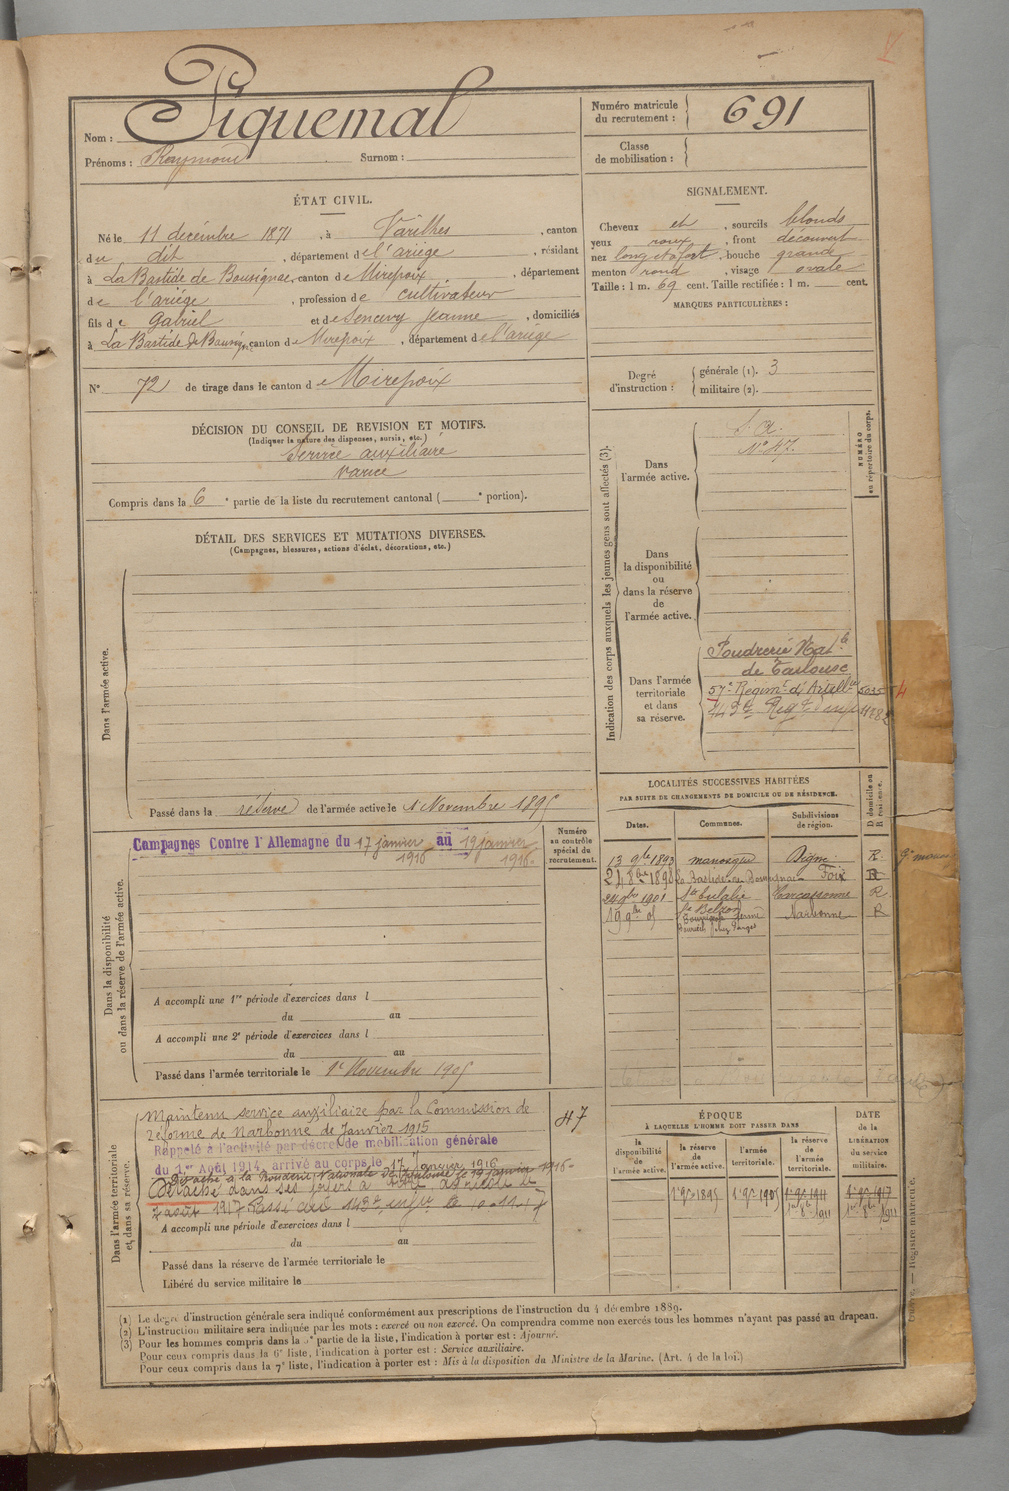 Nom : Piquemal
Prénoms : Raymond Surnom :
Numéro matricule du recrutement : 691
Classe de mobilisation :
ÉTAT CIVIL.
Né le 11 décembre 1871, à Varilhes, canton
du dit, département de l'ariège, résidant
à La Bastide de Bousignac, canton de Mirepoix, département
de l'ariège, profession de cultivateur
fils de Gabriel et de Senervy Jeanne, domiciliés
à La Bastide de Bousign, canton de Mirepoix, département de l'ariège
N° 72 de tirage dans le canton de Mirepoix
SIGNALEMENT.
Cheveux et, sourcils blonds
yeux roux, front découvert
nez long et fort, bouche grande
menton rond, visage ovale
Taille : 1 m. 69 cent. Taille rectifiée : 1 m. cent.
MARQUES PARTICULIÈRES :
Degré d'instruction : générale (1). 3
militaire (2).
DÉCISION DU CONSEIL DE REVISION ET MOTIFS.
(Indiquer la nature des dispenses, sursis, etc.)
Service auxiliaire
varice
Compris dans la 6e partie de la liste du recrutement cantonal ( e portion).
DÉTAIL DES SERVICES ET MUTATIONS DIVERSES.
(Campagnes, blessures, actions d'éclat, décorations, etc.)
Dans l'armée active.
Passé dans la réserve de l'armée active le 1 Novembre 1895
Indication des corps auxquels les jeunes gens sont affectés (3).
NUMÉRO au répertoire du corps.
Dans l'armée active.
S. A.
N° 47.
Dans la disponibilité ou dans la réserve de l'armée active.
Dans l'armée territoriale et dans sa réserve.
Poudrerie Natle
de Toulouse
57e Régimt d'Artillie 5035
143e Regt d'inf 11782
Dans la disponibilité ou dans la réserve de l'armée active.
Campagnes Contre l'Allemagne du 17 janvier 1916 au 19 janvier 1916.
Numéro au contrôle spécial du recrutement.
A accompli une 1re période d'exercices dans l
du au
A accompli une 2e période d'exercices dans l
du au
Passé dans l'armée territoriale le 1er Novembre 1905
LOCALITÉS SUCCESSIVES HABITÉES
PAR SUITE DE CHANGEMENTS DE DOMICILE OU DE RÉSIDENCE.
D domicile ou R résidence.
Dates. Communes. Subdivisions de région.
13 9bre 1893 manosque Digne R
24 8bre 1898 La Bastide de Bousignac Foix R
24 9bre 1901 Ste Eulalie Carcassonne R
19 9bre 05 Narbonne R
Dans l'armée territoriale et dans sa réserve.
Maintenu service auxiliaire par la Commission de
réforme de Narbonne de Janvier 1915
47
Rappelé à l'activité par décret de mobilisation générale
du 1er Août 1914, arrivé au corps le 17 Janvier 1916
Détaché à la Poudrerie Nationale de Toulouse le 19 janvier 1916
Détaché dans ses foyers à titre agricole le
7 août 1917 Passé au 143e infrie le 10-11-17
A accompli une période d'exercices dans l
du au
Passé dans la réserve de l'armée territoriale le
Libéré du service militaire le
ÉPOQUE
À LAQUELLE L'HOMME DOIT PASSER DANS
DATE de la LIBÉRATION DU SERVICE militaire.
la disponibilité de l'armée active.
la réserve de l'armée active.
l'armée territoriale.
la réserve de l'armée territoriale.
1er 9bre 1895 1er 9bre 1905 1er 9bre 1911 1er 9bre 1917
1er 8bre 1911
(1) Le degré d'instruction générale sera indiqué conformément aux prescriptions de l'instruction du 4 décembre 1889.
(2) L'instruction militaire sera indiquée par les mots : exercé ou non exercé. On comprendra comme non exercés tous les hommes n'ayant pas passé au drapeau.
(3) Pour les hommes compris dans la 5e partie de la liste, l'indication à porter est : Ajourné.
Pour ceux compris dans la 6e liste, l'indication à porter est : Service auxiliaire.
Pour ceux compris dans la 7e liste, l'indication à porter est : Mis à la disposition du Ministre de la Marine. (Art. 4 de la loi.)
Registre matricule.